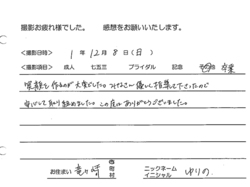 撮影お疲れ様でした。 感想をお願いいたします。
<撮影日時> 1年 12月 8日(日)
<撮影項目> 成人 七五三 ブライダル 記念 その他 卒業
笑顔を作るのが大変でした。みなさん優しく指導して下さったので
安心して取り組めました。この度はありがとうございました。
お住まい 竜ヶ崎 市 町 村 ニックネーム イニシャル ゆりの